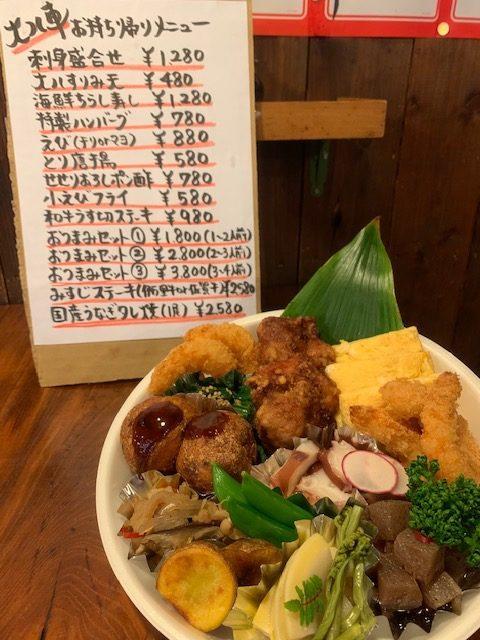 お持ち帰りメニュー
刺身盛合せ ¥1,280
すりみ天 ¥480
海鮮ちらし寿し ¥1,280
特製ハンバーグ ¥780
えび(チリorマヨ) ¥880
とり唐揚 ¥580
せせりおろしポン酢 ¥780
小えびフライ ¥580
和牛うす切ステーキ ¥980
おつまみセット① ¥1,800(1~2人前)
おつまみセット② ¥2,800(2~3人前)
おつまみセット③ ¥3,800(3~4人前)
みすじステーキ( or ) ¥2580
国産うなぎタレ焼(1尾) ¥2580